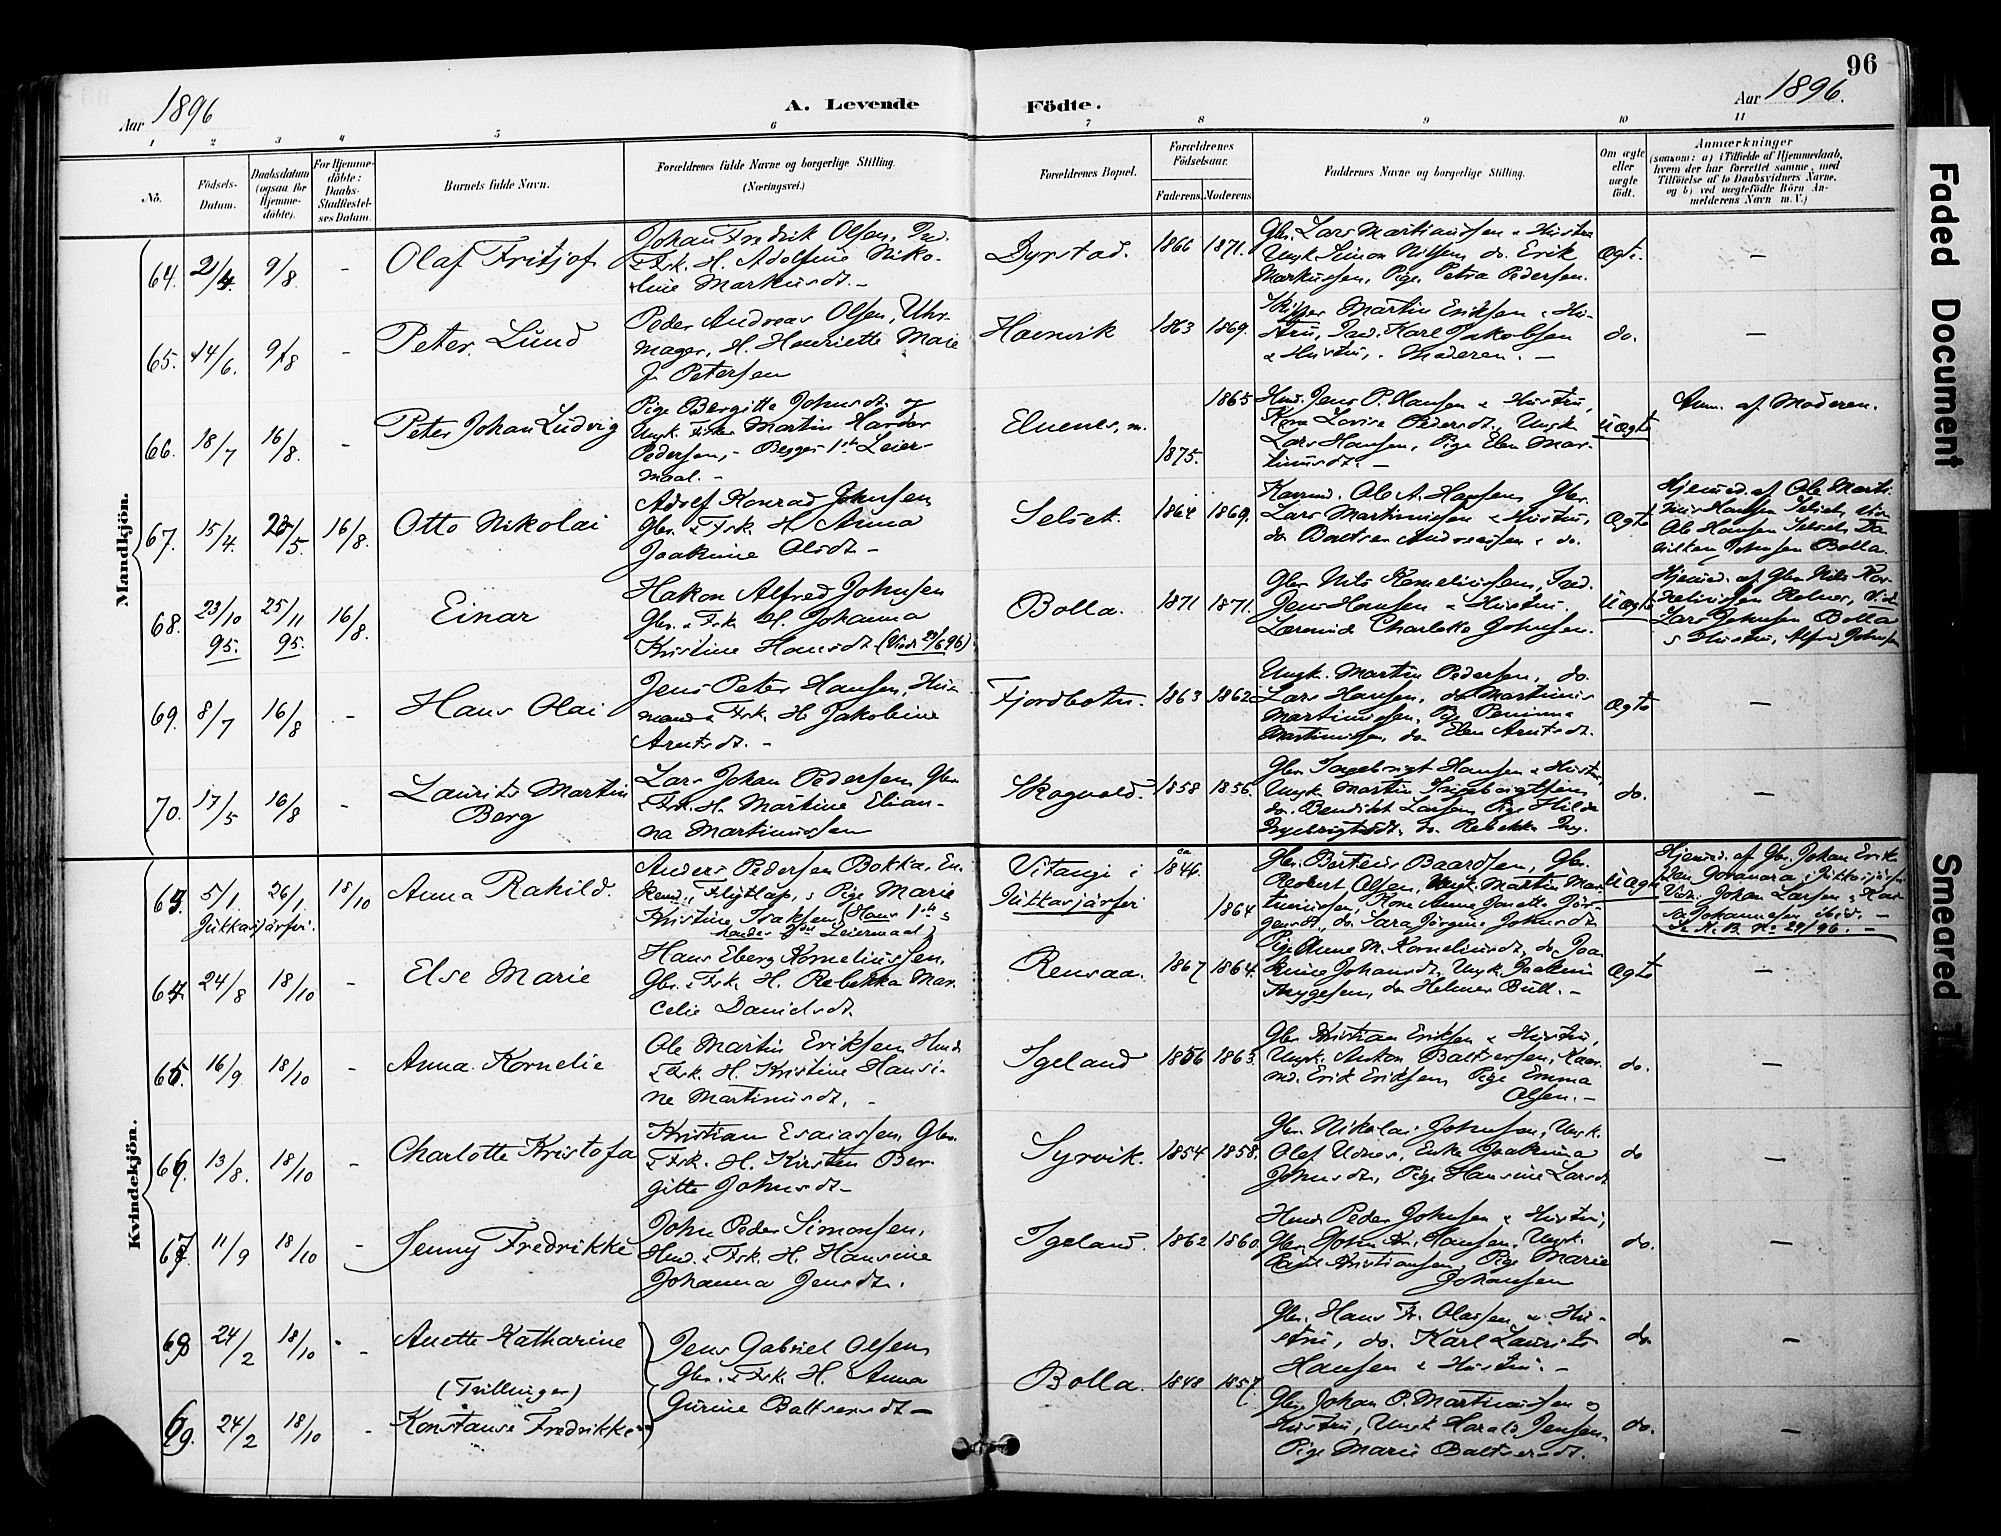 96
Aar 1896
A. Levende
Födte.
Aar 1896.
1 2 3 4 5 6 7 8 9 10 11
No.
Födsels-
Datum.
Daabsdatum
(ogsaa for
Hjemme-
döbte).
For Hjemme-
döbte:
Daabs-
Stadfæstel-
ses Datum.
Barnets fulde Navn.
Forældrenes fulde Navne og borgerlige Stilling.
(Næringsvei.)
Forældrenes Bopæl.
Forældrenes
Födselsaar.
Faderens. Moderens.
Faddernes Navne og borgerlige Stilling.
Om ægte
eller
uægte
født.
Anmærkninger
(saasom: a) i Tilfælde af Hjemmedaab,
hvem der har forrettet samme, med
Tilföielse af to Daabsvidners Navne,
og b) ved uægtefödte Börn An-
melderens Navn m. V.)
Mandkjön.
64. 2/4. 9/8 - Olaf Fritjof
Johan Fredrik Olsen, Ind.
& Fsk. H. Adolfine Niko-
line Markusdt. -
Dyrstad. 1866 1871.
Gbr. Lars Martinussen & Hustru
Ungk. Simon Nilsen, do. Erik
Markussen, Pige Petra Pedersen.
Ægte. -
65. 14/6. 9/8 - Peter Lund
Peder Andreas Olsen, Uhr-
mager, H. Henriette Marie
f. Petersen
Havnvik 1863 1869.
Skipper Martin Eriksen & Hu-
stru, Ind. Karl Jakobsen
& Hustru, Moderen. -
do. -
66. 18/7 16/8. - Peter Johan Ludvig
Pige Bergitte Johnsdt. og
Ungk. Martin Harder
Pedersen, - Begges 1ste Leier-
maal. -
Elvenes, m. 1875. 1865
Hmd. Jens P. Hansen & Hustru,
Kone Lovise Pedersdt., Ungk.
Lars Hansen, Pige Elen Mar-
tinusdt. -
Uægte
Anm. af Moderen.
67. 15/4. 26/5 16/8. Otto Nikolai
Adolf Konrad Johnsen
Gbr. & Fsk. H. Anna
Joakime Olsdt -
Selset. 1864 1869.
Kaarmd. Ole A. Hansen, Gbr.
Lars Martinussen & Hustru,
do Baltser Andreassen & do.
Ægte
Hjemmed. af Ole Marti-
nus Hansen Selset, Vid.
Ole Hansen Selset,
Johnsen Bolla.
68. 23/10 95. 25/11 95. 16/8. Einar
Hakon Alfred Johnsen
Gbr. & Fsk. H. Johanna
Kristine Hansdt (Viede 29/6 96).
Bolla. 1871 1871.
Gbr Nils Kornelinssen, Ind.
Jens Hansen & Hustru.
Charlotte Johnsen.
Uægte
Hjemmed. af Gbr. Nils Kor-
neliussen Helnes, Vid.
Lars Johnsen Bolla
& Hustru, Alfred Johnsen
69. 8/7 16/8 - Hans Olai
Jens Peter Hansen, Hus-
mand & Fsk. H. Jakobine
Arntsdt. -
Fjordbotn. 1863 1862
Ungk. Martin Pedersen, do.
Lars Hansen, do Martinus
Martinussen, Pige Penina
Martinussen, do Elen Arntsdt.
Ægte -
70. 17/5 16/8 - Laurits Martin
Berg
Lars Johan Pedersen, Gbr.
& Fsk. H. Martine Elian-
na Martinussen
Skogvold. 1858 1856.
Gbr. Ingebrigt Hansen & Hustru,
Ungk. Martin Ingebrigtsen,
do. Bendikt Larsen, Pige Hilda
Ingebrigtsdt., do. Rebekka Ing.
do. -
Kvindekjön.
63. 5/1. 26/1. 18/10 Anna Rahild.
Jukkasjärfvi.
Anders Pedersen Bokka, En-
kemd., Flytlap, & Pige Marie
Kristine Isaksen (Hans 1ste &
hendes 2det Leiermaal)
Vitangi i
Jukkasjärfvi ca 1846. 1864
Gbr. Berteus Baardsen, Gbr.
Robert Olsen, Ungk. Martin Mar-
tinussen, Kone Anne Janetta Jör-
gensdt, do. Sara Jörgine Johnsdt.
Uægte
Hjemmed. af Gbr. Johan Erik-
sen i Jukkasjärfvi
Vid.: Johan Larsen & Kar-
Johannesen ibid. -
Se N. B. No 29/96. -
64. 24/8 18/10 - Else Marie
Hans Eberg Kornelinssen,
Gbr. & Fsk. H. Rebekka Mar-
celie Danielsdt.
Rensaa. 1867 1864.
Pige Anne M. Korneliusdt., do Joa-
kime Johansdt., Ungk. Joakim
Tryggesen, do Helmer Bull. -
Ægte -
65. 16/9. 18/10 - Anna Kornelie
Ole Martin Eriksen Hmd.
& Fsk. H. Kristine Hansi-
ne Martinusdt. -
Igeland 1856 1863.
Gbr. Kristian Eriksen & Hustru,
Ungk. Anton Baltsersen, Kaar-
md. Erik Eriksen, Pige Emma
Olsen. -
do. -
66. 13/8. 18/10 - Charlotte Kristofa
Kristian Esaiassen, Gbr.
& Fsk. H. Kirsten Ber-
gitte Johnsdt. -
Syrvik. 1854 1858.
Gbr. Nikolai Johnsen, Ungk.
Olaf Udnes, Enke Joakima
Johnsdt., Pige Hansine Larsdt
do -
67. 11/9 18/10 - Jenny Fredrikke
John Peder Simonsen,
Hmd. & Fsk. H. Hansine
Johanna Jensdt.
Igeland. 1862 1860.
Hmd. Peder Johnsen & Hustru,
Gbr. John Kr. Hansen, Ungk.
Paul Kristiansen, Pige Marie
Johansen
do. -
68 24/2 18/10 - Anette Katharine
(Tvillinger)
69. 24/2 18/10 - Konstanse Fredrikke
Jens Gabriel Olsen,
Gbr. & Fsk. H. Anna
Gurine Baltsersdt -
Bolla. 1848 1857.
Gbr. Hans Fr. Olaisen & Hu-
stru, do. Karl Laurits
Hansen & Hustru. -
do. -
Gbr. Johan O. Martinussen &
Hustru, Ungk Harald Jensen,
Pige Marie Baltsersdt.
do. -
Faded Document
Smeared